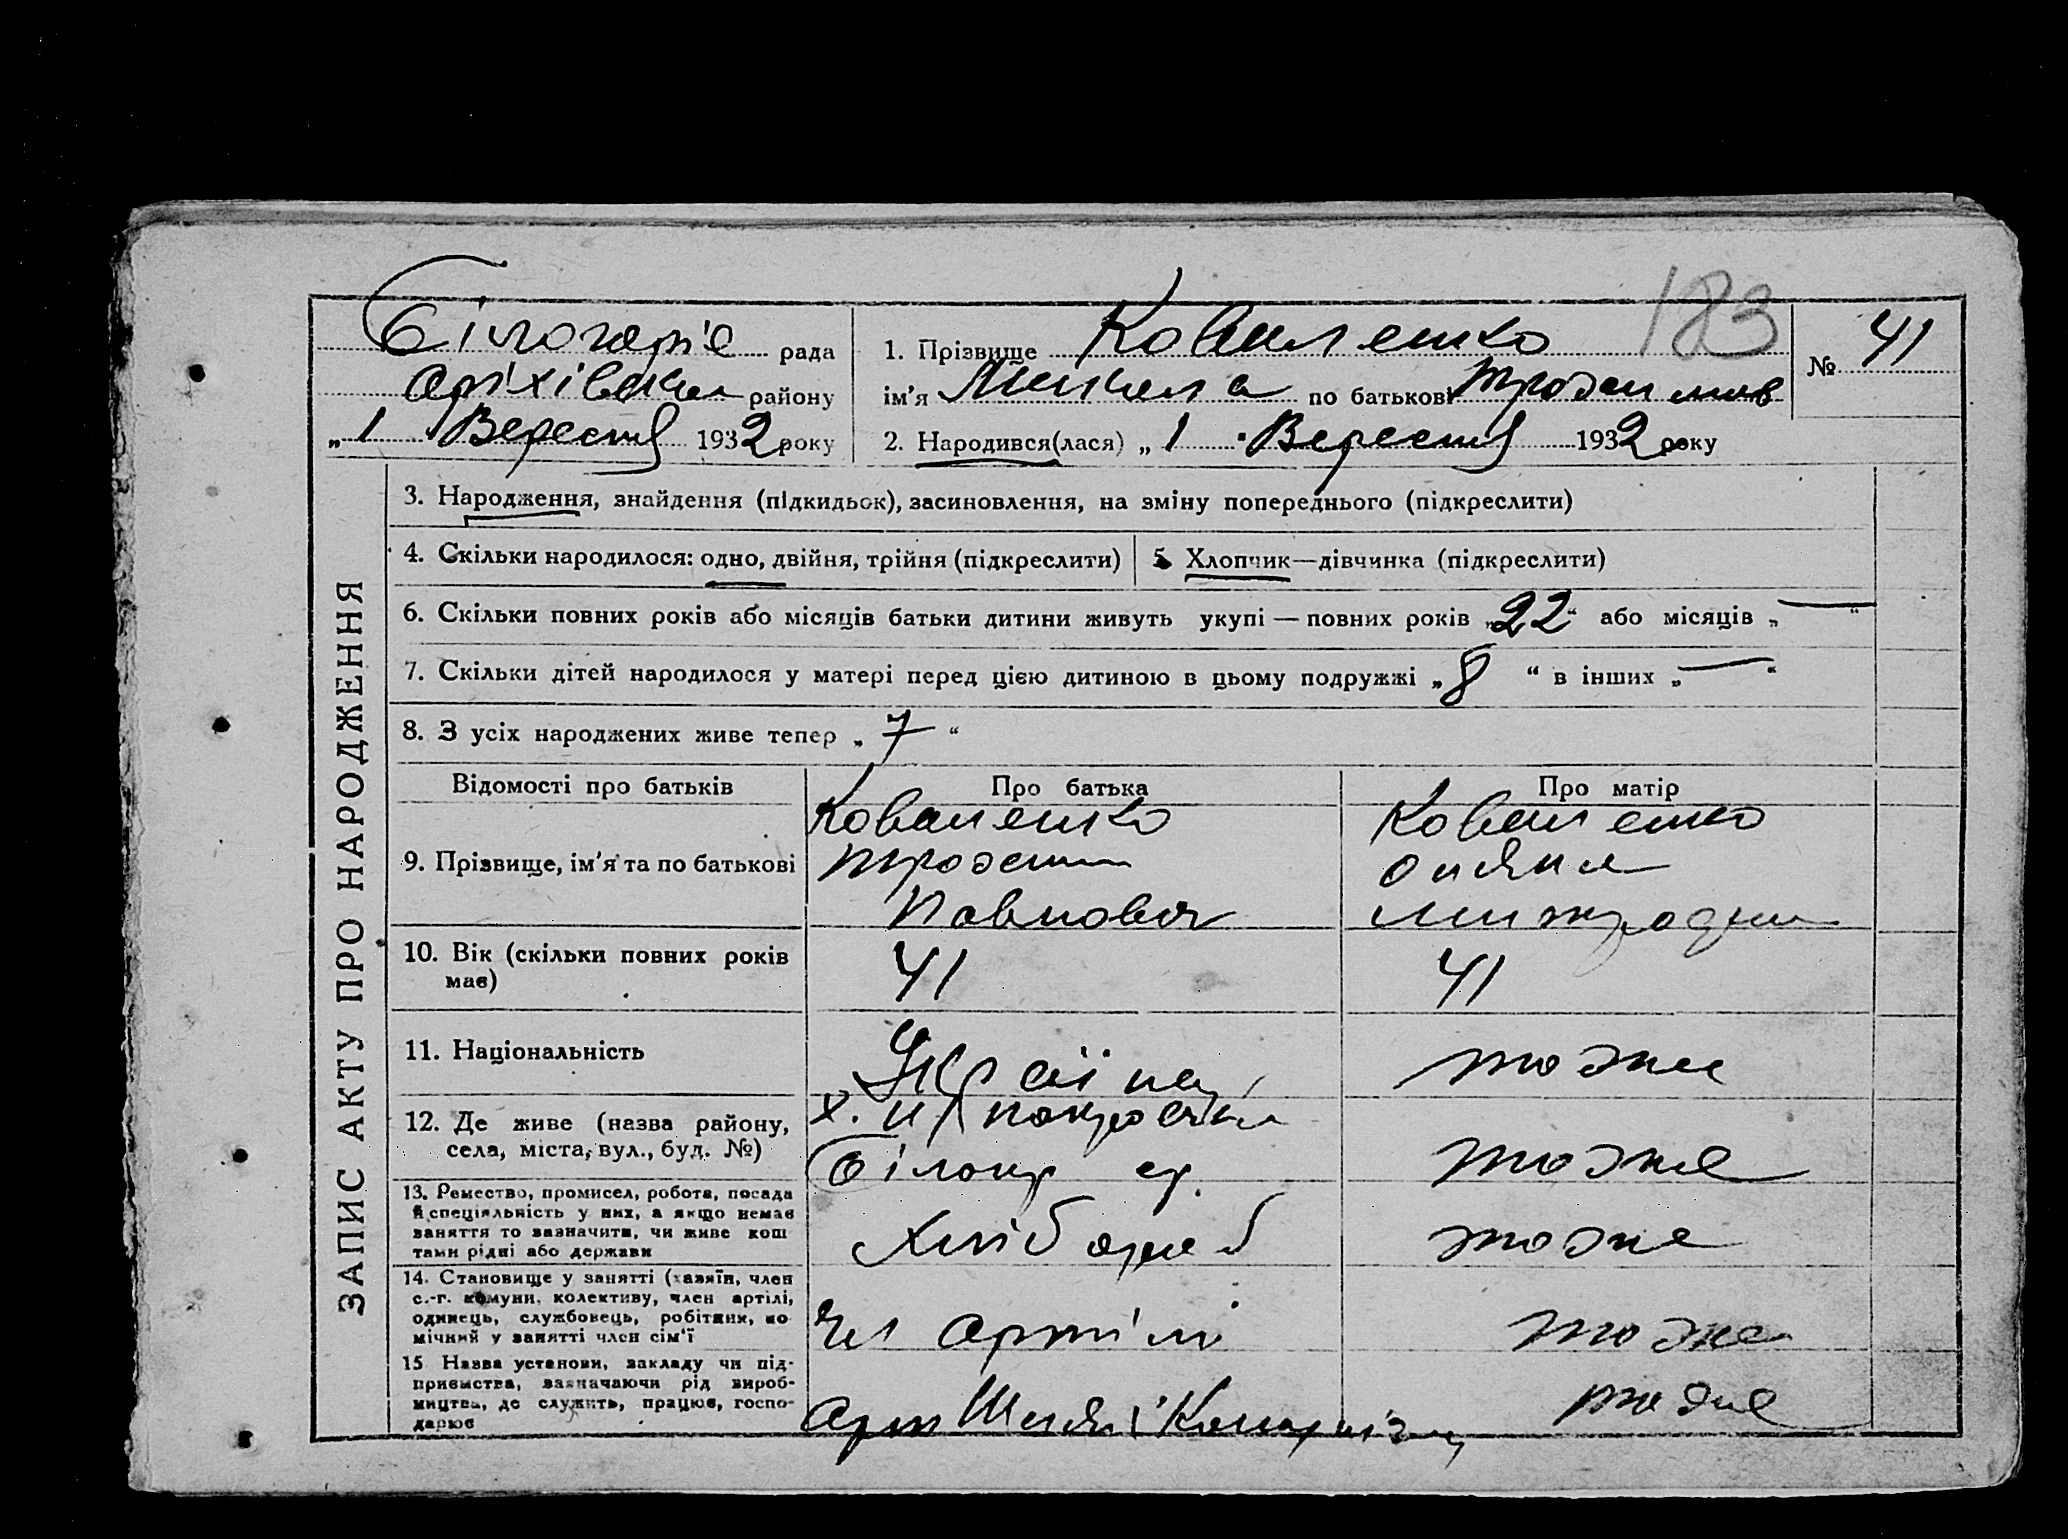 183
Білогар'є рада
Оріхівськ району
„ 1 „ Вересня 1932 року
1. Прізвище Коваленко № 41
ім'я Микола по батькові Трохимов
2. Народився(лася) „ 1 " Вересня 1932 року
ЗАПИС АКТУ ПРО НАРОДЖЕННЯ
3. Народження, знайдення (підкидьок), засиновлення, на зміну попереднього (підкреслити)
4. Скільки народилося: одно, двійня, трійня (підкреслити) 5. Хлопчик—дівчинка (підкреслити)
6. Скільки повних років або місяців батьки дитини живуть укупі — повних років „22“ або місяців „—“
7. Скільки дітей народилося у матері перед цією дитиною в цьому подружжі „8“ в інших „—“
8. З усіх народжених живе тепер „7“
Відомості про батьків Про батька Про матір
9. Прізвище, ім'я та по батькові
Коваленко
Трохим
Павлович
Коваленко
10. Вік (скільки повних років
має)
41
41
11. Національність
Україна
тоже
12. Де живе (назва району,
села, міста, вул., буд. №)
х.
Білогір
тоже
13. Ремество, промисел, робота, посада
й спеціяльність у них, а якщо немає
заняття то зазначити, чи живе кош
тами рідні або держави
Хлібороб
тоже
14. Становище у занятті (хазяїн, член
с.-г. комуни, колективу, член артілі,
одинець, службовець, робітник, по
мічний у занятті член сім'ї
Чл Артілі
тоже
15 Назва установи, закладу чи під-
приємства, зазначаючи рід вироб-
ництва, де служить, працює, госпо-
дарює
Арт Шлях Комунізму
тоже